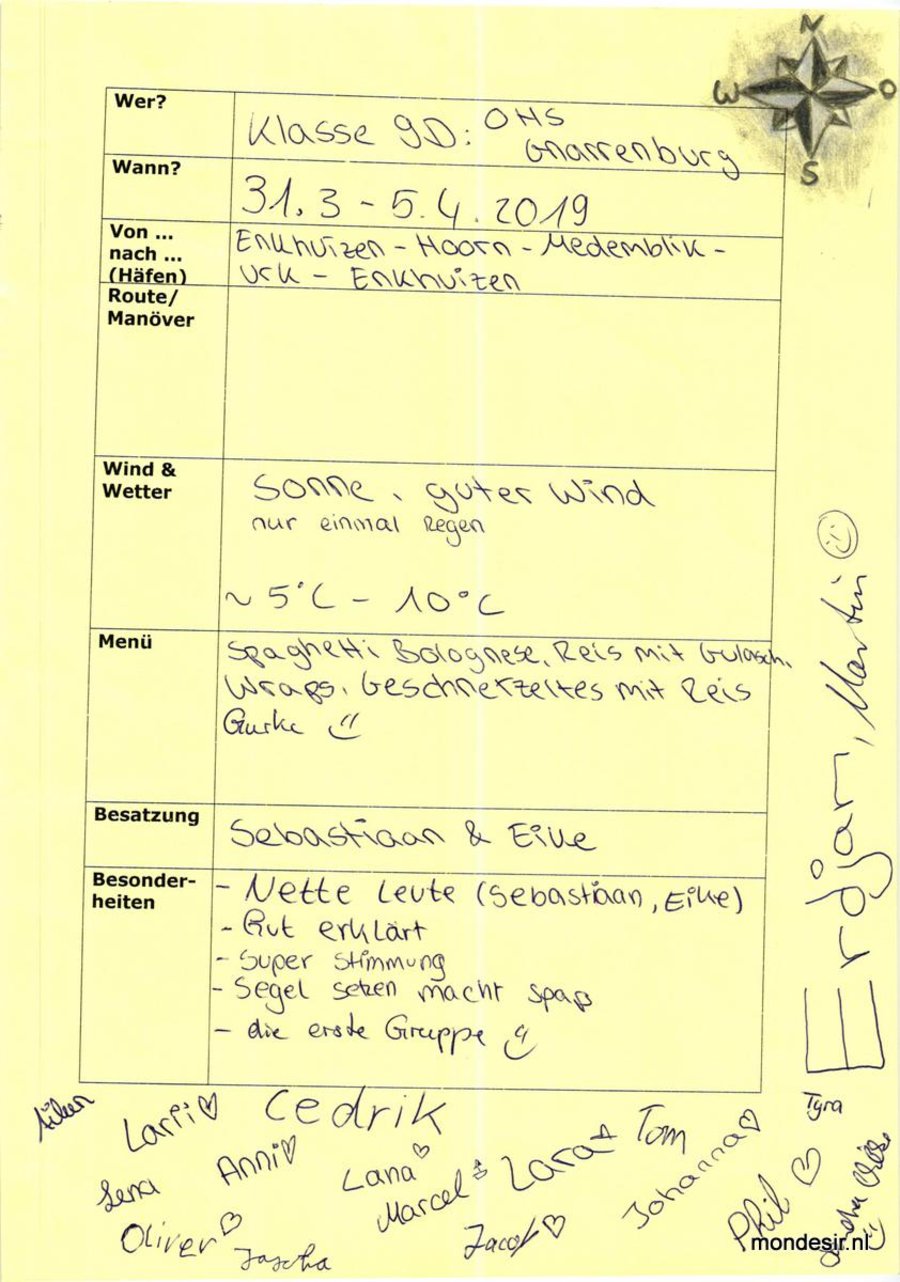 N
W O
S
Wer?
Klasse 9D: OHS
Gnarrenburg
Wann?
31.3 - 5.4.2019
Von ...
nach ...
(Häfen)
Enkhuizen - Hoorn - Medemblik -
Urk - Enkhuizen
Route/
Manöver
Wind &
Wetter
Sonne, guter Wind
nur einmal Regen
~ 5°C - 10°C
Menü
Spaghetti Bolognese, Reis mit Gulasch,
Wraps, Geschnerzeltes mit Reis
Gurke
Besatzung
Sebastiaan & Eike
Besonder-
heiten
- Nette Leute (Sebastiaan, Eike)
- Gut erklärt
- Super Stimmung
- Segel setzen macht spaß
- die erste Gruppe
Erdjan, Martin
Tyra
Larii Cedrik
Anni Lana Lara Tom
Lena Marcel Johanna Phil
Oliver Jascha Jacob
mondesir.nl